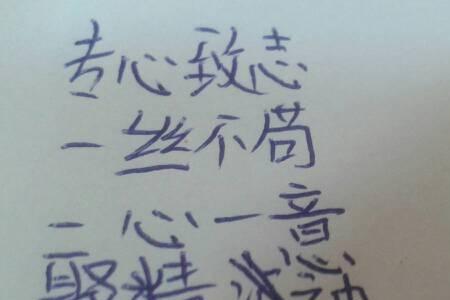 专心致志
一丝不苟
一心一意
聚精